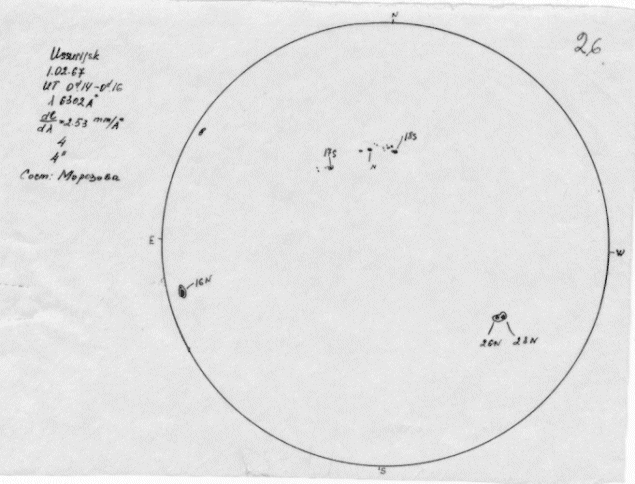 Ussurijsk
1.02.67
UT 0ᵈ.14-0ᵈ.16
λ 6302A°
dℓ/dλ = 2.53 mm/A°
4
4"
Сост: Морозова
26
N
18S
17S
N
E
W
16N
26N
23N
S